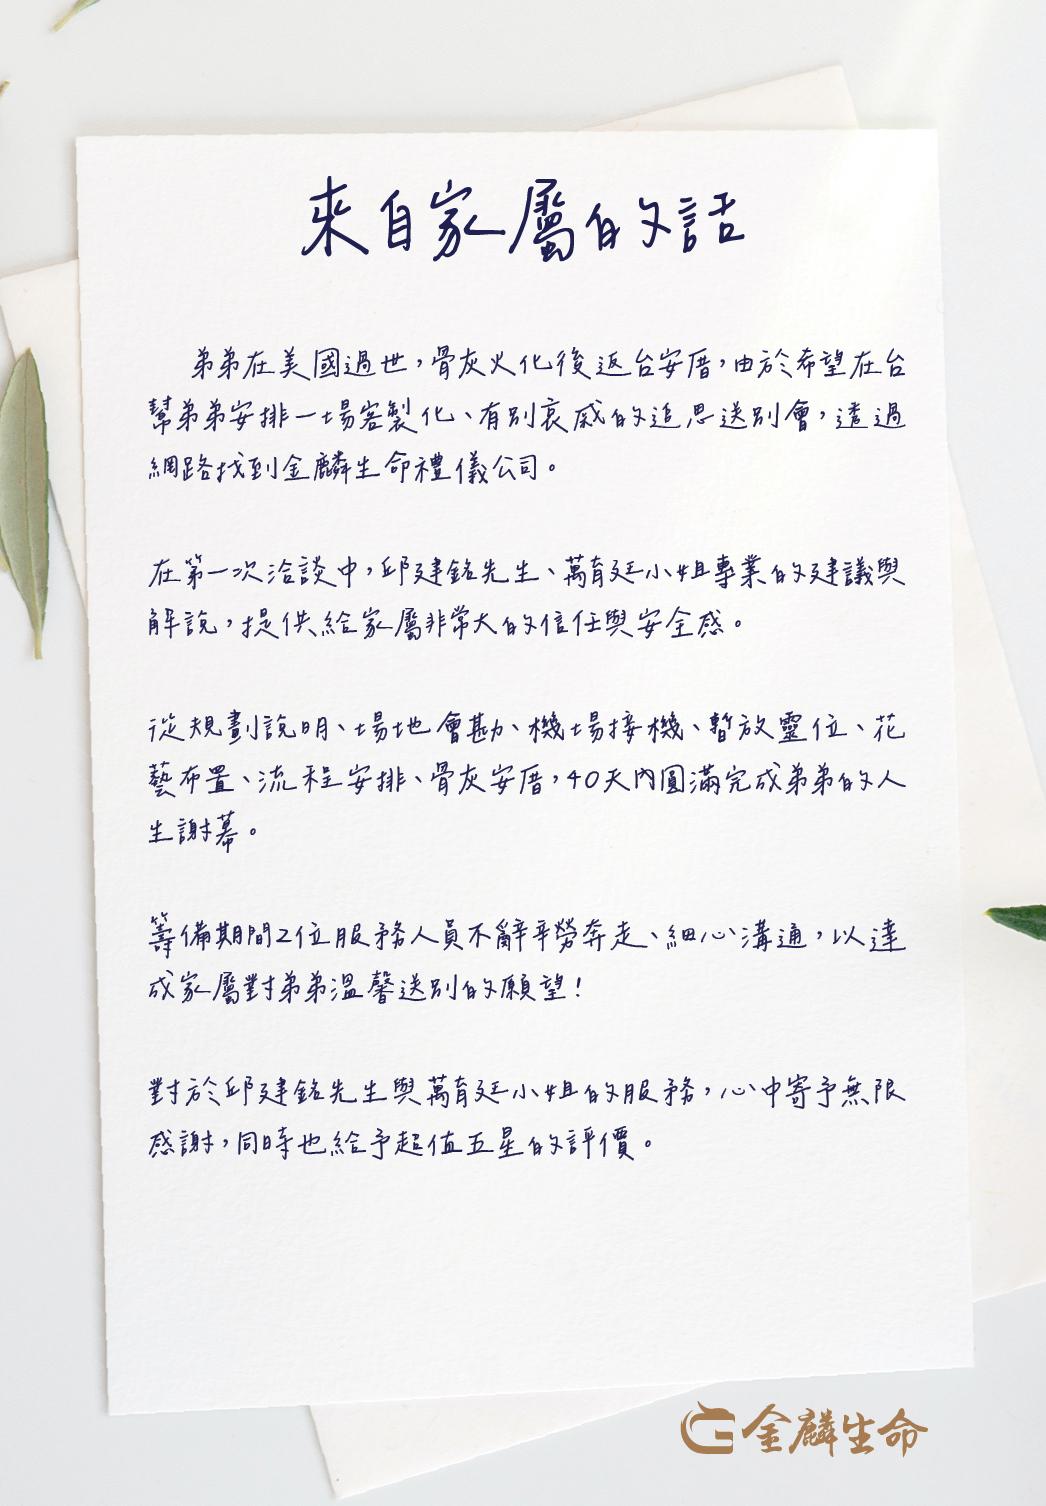 來自家屬的話
弟弟在美國過世，骨灰火化後返台安厝，由於希望在台
幫弟弟安排一場客製化、有別哀戚的追思送別會，透過
網路找到金麟生命禮儀公司。
在第一次洽談中，邱建銘先生、萬育廷小姐專業的建議與
解說，提供給家屬非常大的信任與安全感。
從規劃說明、場地會勘、機場接機、暫放靈位、花
藝布置、流程安排、骨灰安厝，40天內圓滿完成弟弟的人
生謝幕。
籌備期間2位服務人員不辭辛勞奔走、細心溝通，以達
成家屬對弟弟溫馨送別的願望！
對於邱建銘先生與萬育廷小姐的服務，心中寄予無限
感謝，同時也給予超值五星的評價。
金麟生命